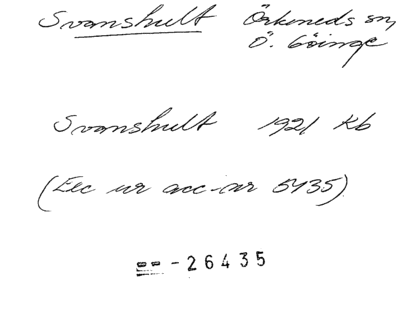 Svanshult Örkeneds sn,
Ö. Göinge
Svanshult 1921 Kb
(Exc ur acc-nr 5435)
-26435